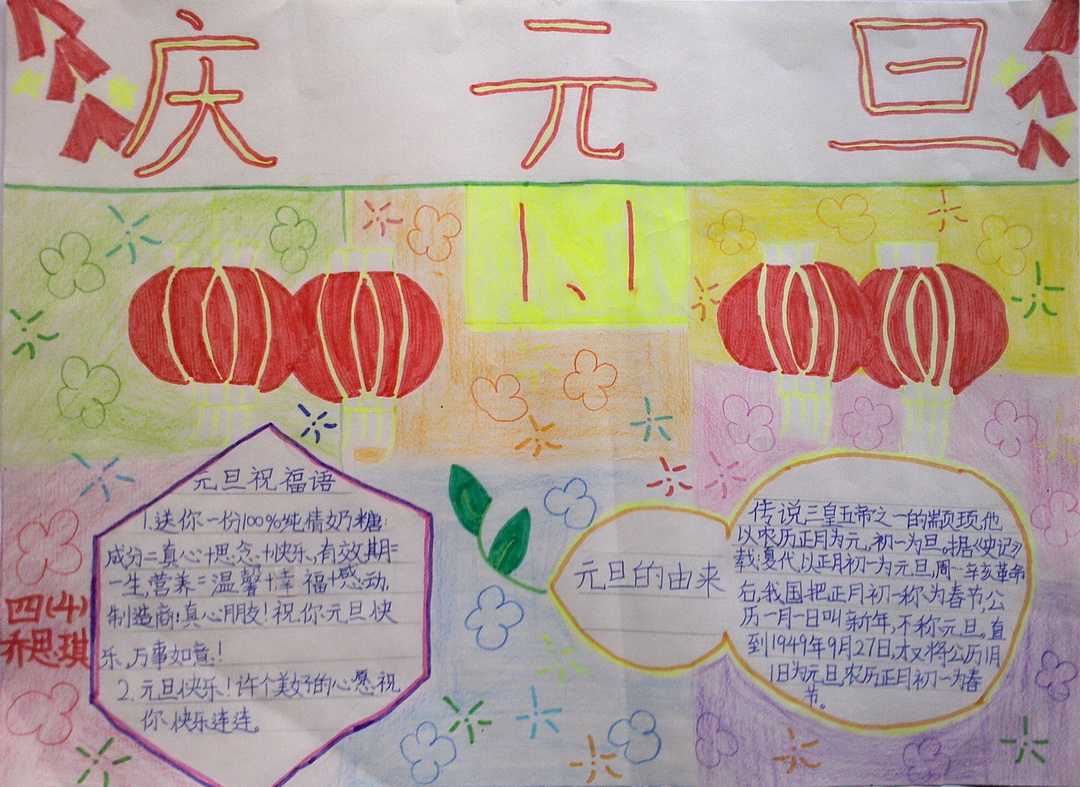 庆元旦
1、1
元旦祝福语
1.送你一份100%纯情奶糖:
成分=真心+思念+快乐,有效期=
一生,营养=温馨+幸福+感动,
制造商:真心朋友!祝你元旦快
乐,万事如意!
2.元旦快乐!许个美好的心愿祝
你快乐连连。
四(4)
乔思琪
元旦的由来
传说三皇五帝之一的颛顼,他
以农历正月为元,初一为旦。据《史记》
载:夏代以正月初一为元旦,周…辛亥革命
后,我国把正月初一称为春节,公
历一月一日叫新年,不称元旦。直
到1949年9月27日,才又将公历1月
1日为元旦,农历正月初一为春
节。